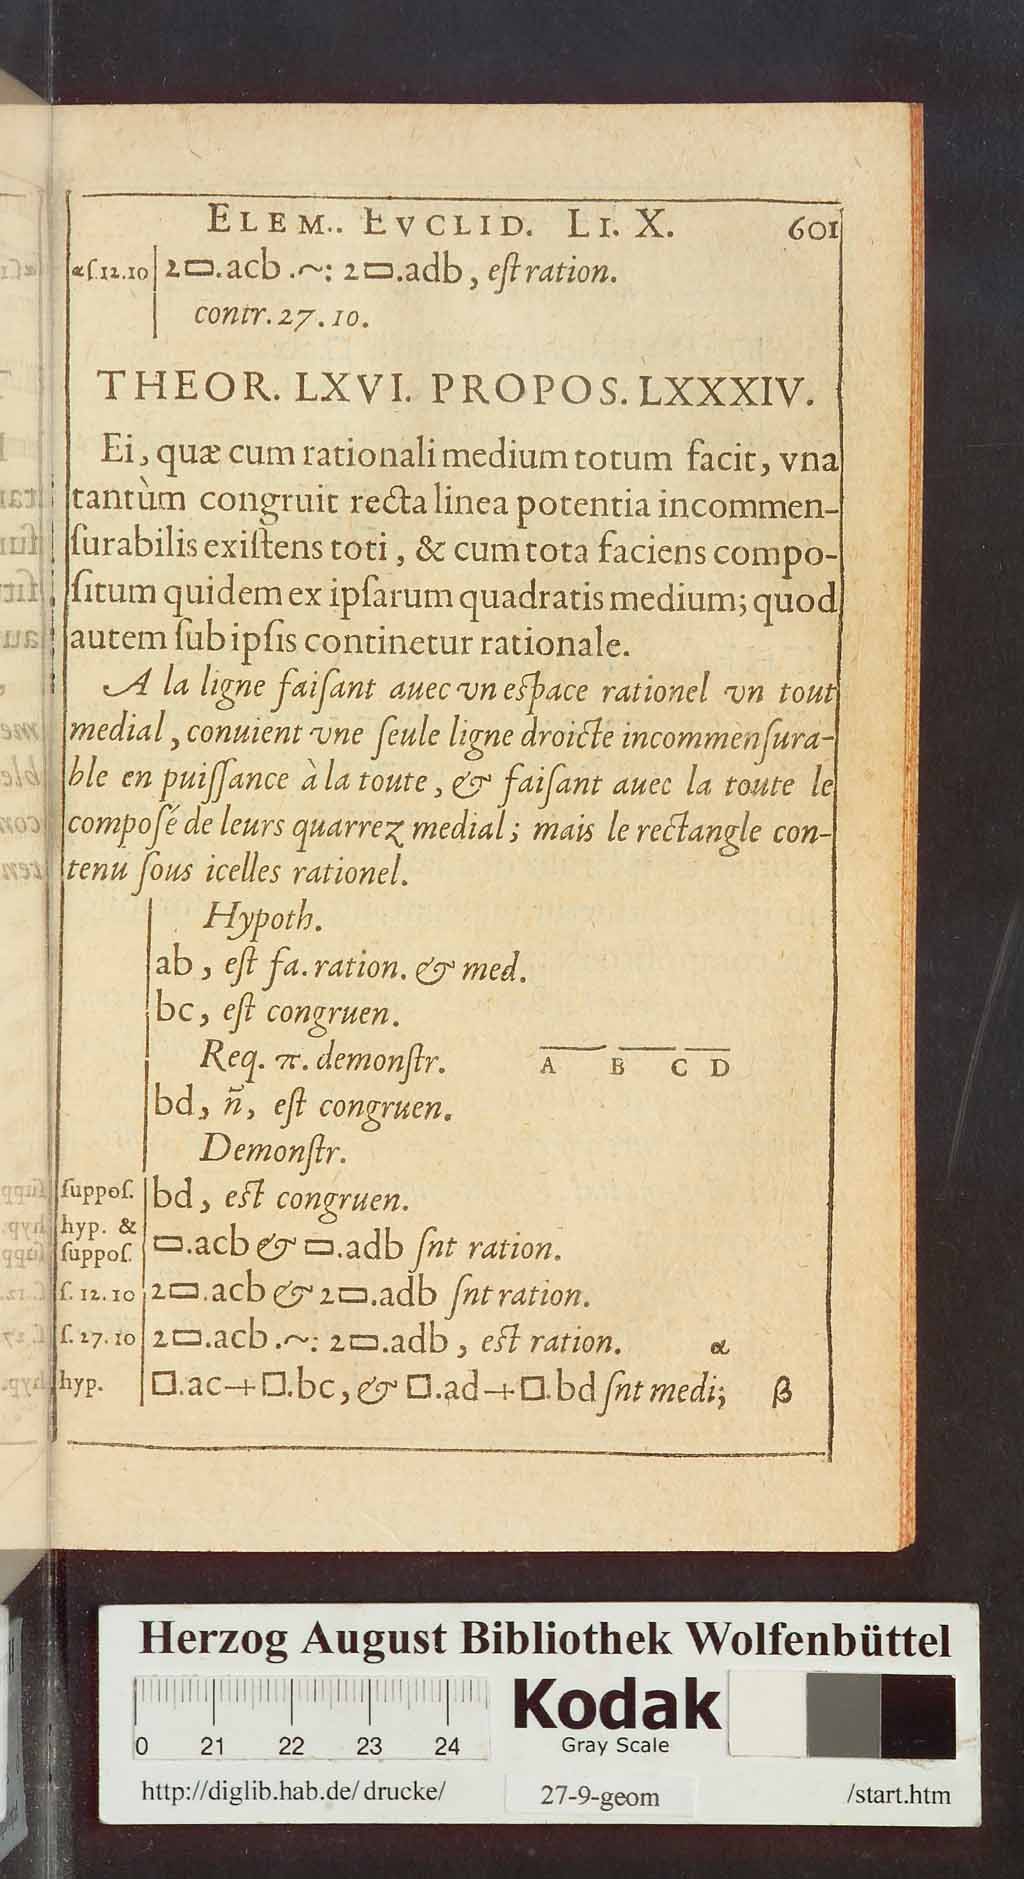 ELEM.. EVCLID. LI. X. 601
αſ.12.10 2▭.acb .~: 2▭.adb, eſt ration.
contr. 27. 10.
THEOR. LXVI. PROPOS. LXXXIV.
Ei, quæ cum rationali medium totum facit, vna
tantùm congruit recta linea potentia incommen-
ſurabilis exiſtens toti, & cum tota faciens compo-
ſitum quidem ex ipſarum quadratis medium; quod
autem ſub ipſis continetur rationale.
A la ligne faiſant auec vn eſpace rationel vn tout
medial, conuient vne ſeule ligne droicte incommenſura-
ble en puiſſance à la toute, & faiſant auec la toute le
compoſé de leurs quarrez medial; mais le rectangle con-
tenu ſous icelles rationel.
Hypoth.
ab, eſt fa. ration. & med.
bc, eſt congruen.
Req. π. demonſtr.
A B C D
bd, ñ, eſt congruen.
Demonſtr.
ſuppoſ. bd, eſt congruen.
hyp. &
ſuppoſ. ▭.acb & ▭.adb ſnt ration.
ſ. 12. 10 2▭.acb & 2▭.adb ſnt ration.
ſ. 27. 10 2▭.acb .~: 2▭.adb, eſt ration. α
hyp. □.ac+□.bc, & □.ad+□.bd ſnt medi; β
Herzog August Bibliothek Wolfenbüttel
Kodak
Gray Scale
0 21 22 23 24
http://diglib.hab.de/drucke/ 27-9-geom /start.htm